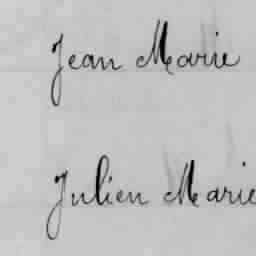 Jean Marie
Julien Marie